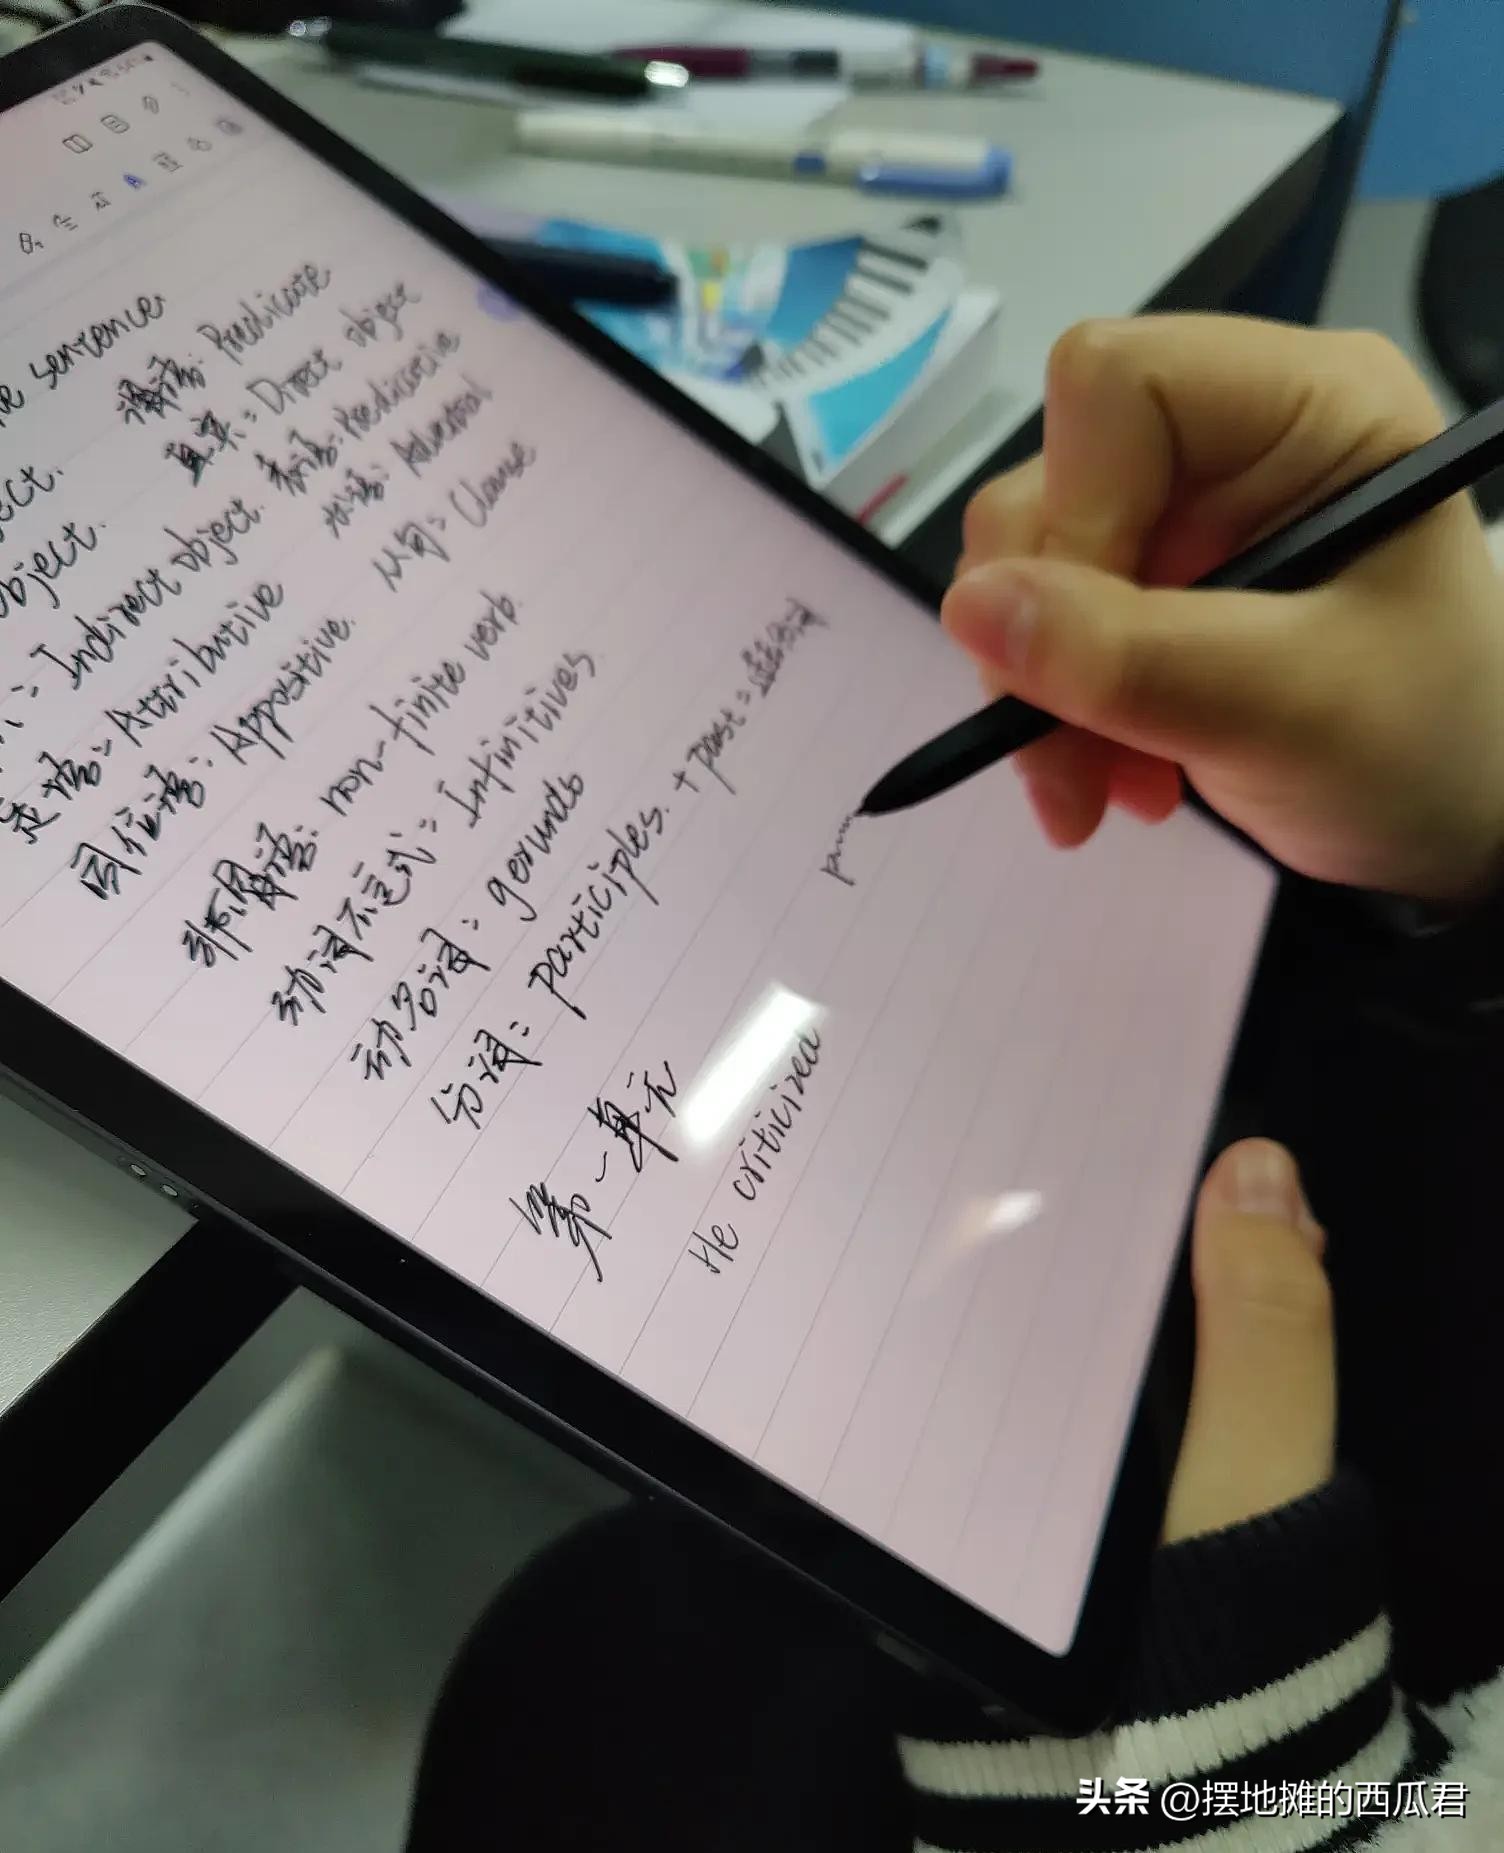 sentence
谓语: Predicate
ect.
直宾: Direct object
object.
表语: Predicative
: Indirect object.
状语: Adverbial
定语: Attributive
从句: Clause
同位语: Appositive.
非谓语: non-finite verb.
动词不定式: Infinitives.
动名词: gerunds
分词: participles. + past =
第一单元
He criticized
头条 @摆地摊的西瓜君